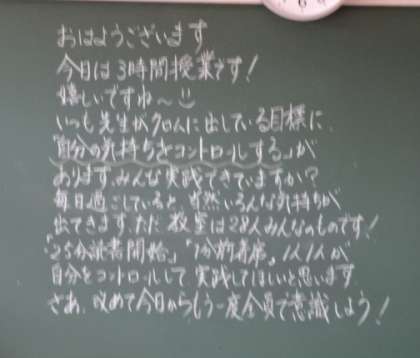 おはようございます
今日は3時間授業です!
嬉しいですね〜
いつも先生がクロムに出している目標に、
「自分の気持ちをコントロールする」が
あります。みんな実践できていますか?
毎日過ごしていると、当然いろんな気持ちが
出てきます。ただ教室は28人みんなのものです!
「25分読書開始」「1分前着席」1人1人が
自分をコントロールして実践してほしいと思います。
さあ、改めて今日からもう一度全員で意識しよう!
6